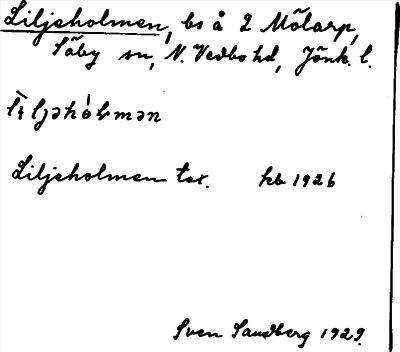 Liljeholmen, bs å 2 Mölarp,
Säby sn, N. Vedbo hd, Jönk. l.
Liljeholmen tor. kb 1926
Sven Sandberg 1929.